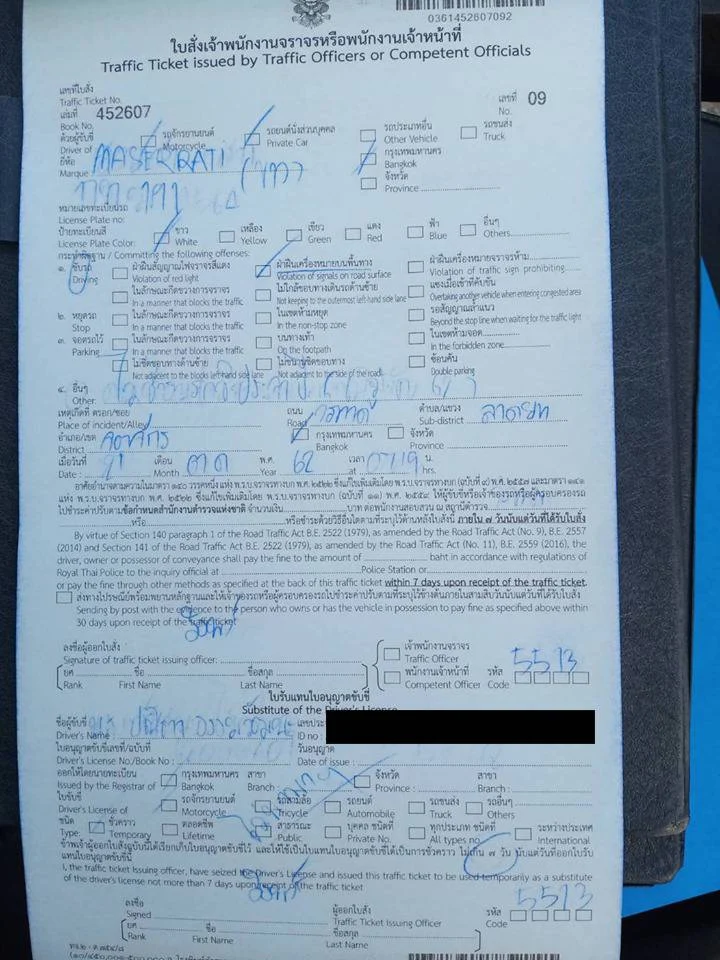 0361452607092
ใบสั่งเจ้าพนักงานจราจรหรือพนักงานเจ้าหน้าที่
Traffic Ticket issued by Traffic Officers or Competent Officials
เลขที่ใบสั่ง
Traffic Ticket No.
เล่มที่ 452607 เลขที่ 09
Book No. No.
ด้วยผู้ขับขี่ รถจักรยานยนต์ รถยนต์นั่งส่วนบุคคล รถประเภทอื่น รถขนส่ง
Driver of Motorcycle Private Car Other Vehicle Truck
ยี่ห้อ MASERRATI กรุงเทพมหานคร
Marque Bangkok
จังหวัด
Province
หมายเลขทะเบียนรถ
License Plate no:
ป้ายทะเบียนสี ขาว เหลือง เขียว แดง ฟ้า อื่นๆ
License Plate Color: White Yellow Green Red Blue Others
กระทำผิดฐาน / Committing the following offenses:
๑. ขับรถ ฝ่าฝืนสัญญาณไฟจราจรสีแดง ฝ่าฝืนเครื่องหมายบนพื้นทาง ฝ่าฝืนเครื่องหมายจราจรห้าม
Driving Violation of red light Violation of signals on road surface Violation of traffic sign prohibiting
ในลักษณะกีดขวางการจราจร ไม่ใกล้ขอบทางเดินรถด้านซ้าย แซงเมื่อเข้าที่คับขัน
In a manner that blocks the traffic Not keeping to the outermost left-hand side lane Overtaking another vehicle when entering congested area
๒. หยุดรถ ในลักษณะกีดขวางการจราจร ในเขตห้ามหยุด รอสัญญาณล้ำแนว
Stop In a manner that blocks the traffic In the non-stop zone Beyond the stop line when waiting for the traffic light
๓. จอดรถไว้ ในลักษณะกีดขวางการจราจร บนทางเท้า ในเขตห้ามจอด
Parking In a manner that blocks the traffic On the footpath In the forbidden zone
ไม่ชิดขอบทางด้านซ้าย ไม่ขนานชิดขอบทาง ซ้อนคัน
Not adjacent to the blocks left-hand side lane Not adjacent to the side of the road Double parking
๔. อื่นๆ
Other:
เหตุเกิดที่ ตรอก/ซอย ถนน ตำบล/แขวง ลาดยาว
Place of incident/Alley Road Sub-district
อำเภอ/เขต จตุจักร กรุงเทพมหานคร จังหวัด
District Bangkok Province
เมื่อวันที่ เดือน ตค พ.ศ. 62 เวลา น.
Date : Month Year at hrs.
อาศัยอำนาจตามความในมาตรา ๑๔๐ วรรคหนึ่ง แห่ง พ.ร.บ.จราจรทางบก พ.ศ. ๒๕๒๒ ซึ่งแก้ไขเพิ่มเติมโดย พ.ร.บ.จราจรทางบก (ฉบับที่ ๙) พ.ศ. ๒๕๕๗ และมาตรา ๑๔๑
แห่ง พ.ร.บ.จราจรทางบก พ.ศ. ๒๕๒๒ ซึ่งแก้ไขเพิ่มเติมโดย พ.ร.บ.จราจรทางบก (ฉบับที่ ๑๑) พ.ศ. ๒๕๕๙ ให้ผู้ขับขี่หรือเจ้าของรถหรือผู้ครอบครองรถ
ไปชำระค่าปรับตามข้อกำหนดสำนักงานตำรวจแห่งชาติ จำนวนเงิน บาท ต่อพนักงานสอบสวน ณ สถานีตำรวจ
หรือ หรือชำระด้วยวิธีอื่นใดตามที่ระบุไว้ด้านหลังใบสั่งนี้ ภายใน ๗ วันนับแต่วันที่ได้รับใบสั่ง
By virtue of Section 140 paragraph 1 of the Road Traffic Act B.E. 2522 (1979), as amended by the Road Traffic Act (No. 9), B.E. 2557
(2014) and Section 141 of the Road Traffic Act B.E. 2522 (1979), as amended by the Road Traffic Act (No. 11), B.E. 2559 (2016), the
driver, owner or possessor of conveyance shall pay the fine to the amount of baht in accordance with regulations of
Royal Thai Police to the inquiry official at Police Station or
or pay the fine through other methods as specified at the back of this traffic ticket within 7 days upon receipt of the traffic ticket.
ส่งทางไปรษณีย์พร้อมพยานหลักฐานและให้เจ้าของรถหรือผู้ครอบครองรถไปชำระค่าปรับตามที่ระบุไว้ข้างต้นภายในสามสิบวันนับแต่วันที่ได้รับใบสั่ง
Sending by post with the evidence to the person who owns or has the vehicle in possession to pay fine as specified above within
30 days upon receipt of the traffic ticket
ลงชื่อผู้ออกใบสั่ง เจ้าพนักงานจราจร
Signature of traffic ticket issuing officer: Traffic Officer
ยศ ชื่อ ชื่อสกุล พนักงานเจ้าหน้าที่ รหัส 5513
Rank First Name Last Name Competent Officer Code
ใบรับแทนใบอนุญาตขับขี่
Substitute of the Driver's License
ชื่อผู้ขับขี่
Driver's Name : ID no :
ใบอนุญาตขับขี่เลขที่/ฉบับที่ วันอนุญาต
Driver's License No./Book No : Date of issue :
ออกให้โดยนายทะเบียน กรุงเทพมหานคร สาขา จังหวัด สาขา
Issued by the Registrar of Bangkok Branch : Province : Branch :
ใบขับขี่ รถจักรยานยนต์ รถสามล้อ รถยนต์ รถขนส่ง รถอื่นๆ
Driver's License of Motorcycle Tricycle Automobile Truck Others
ชนิด ชั่วคราว ตลอดชีพ สาธารณะ บุคคล ชนิดที่ ทุกประเภท ชนิดที่ ระหว่างประเทศ
Type: Temporary Lifetime Public Private No. All types no. International
ข้าพเจ้าผู้ออกใบสั่งฉบับนี้ได้เรียกเก็บใบขับขี่ไว้ และให้ใช้เป็นใบแทนใบอนุญาตขับขี่ได้เป็นการชั่วคราว ไม่เกิน ๗ วัน นับแต่วันที่ออกใบรับ
แทนใบอนุญาตขับขี่นี้
I, the traffic ticket issuing officer, have seized the Driver's License and issued this traffic ticket to be used temporarily as a substitute
of the driver's license not more than 7 days upon receipt of the traffic ticket
ลงชื่อ ผู้ออกใบสั่ง รหัส 5513
Signed Traffic Ticket Issuing Officer Code
ยศ ชื่อ ชื่อสกุล
Rank First Name Last Name